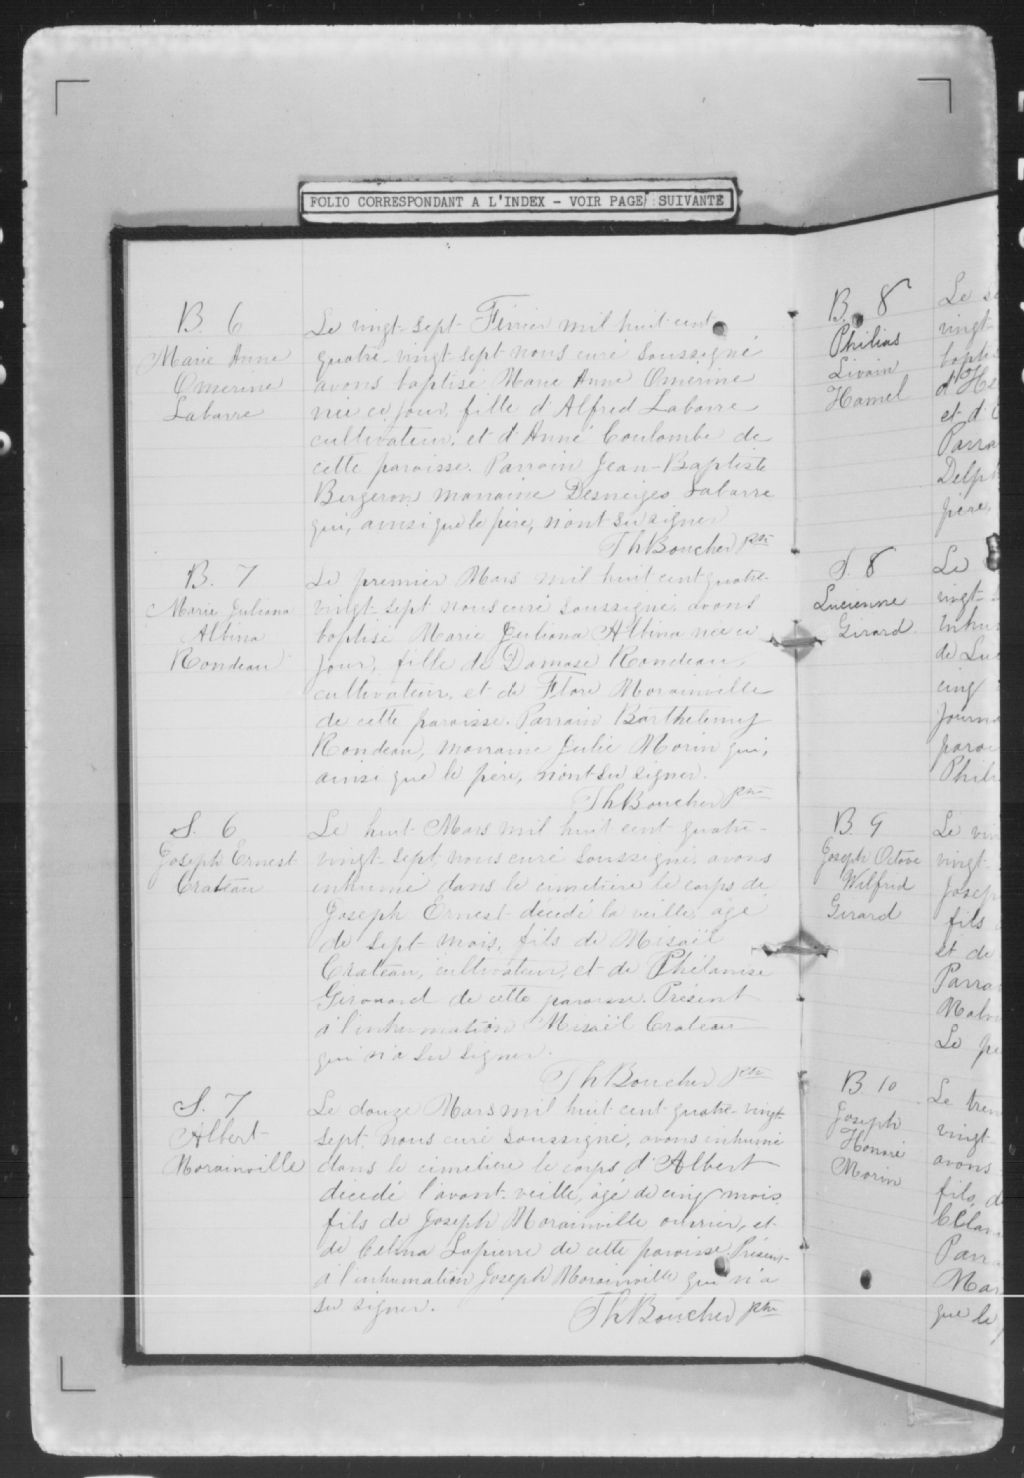 FOLIO CORRESPONDANT A L'INDEX - VOIR PAGE SUIVANTE
B. 6
Marie Anne
Omerine
Labarre
Le vingt-sept Février mil huit cent
quatre-vingt-sept nous curé soussigné
avons baptisé Marie Anne Omerine
née ce jour, fille d'Alfred Labarre
cultivateur, et d'Anné Coulombe de
cette paroisse. Parrain Jean-Baptiste
Bergeron marraine Desneiges Labarre
qui, ainsi que le père, n'ont su signer
Th Boucher ptre
B. 7
Marie Juliana
Albina
Rondeau
Le premier Mars mil huit cent quatre-
vingt-sept nous curé soussigné, avons
baptisé Marie Juliana Albina née ce
jour, fille de Damase Rondeau,
cultivateur, et de Flore Morainville
de cette paroisse. Parrain Barthelemy
Rondeau, marraine Julie Morin qui,
ainsi que le père, n'ont su signer.
Th Boucher ptre
S. 6
Joseph Ernest
Crateau
Le huit Mars mil huit cent quatre-
vingt-sept nous curé soussigné, avons
inhumé dans le cimetière le corps de
Joseph Ernest décédé la veille, âgé
de sept mois, fils de Misaël
Crateau, cultivateur, et de Philanise
Girouard de cette paroisse. Présent
à l'inhumation Misaël Crateau
qui n'a su signer.
Th Boucher ptre
S. 7
Albert
Morainville
Le douze Mars mil huit cent quatre-vingt-
sept nous curé soussigné, avons inhumé
dans le cimetière le corps d'Albert
décédé l'avant-veille, âgé de cinq mois
fils de Joseph Morainville ouvrier, et
de Celina Lapierre de cette paroisse. Présent
à l'inhumation Joseph Morainville qui n'a
su signer.
Th Boucher ptre
B. 8
Philias
Livain
Hamel
Le
vingt-
baptis
d'He
et d'
Parra
Delph
père,
S. 8
Lucienne
Girard
Le
vingt-
inhu
de Luc
cinq
Journa
paroi
Phili
B. 9
Joseph Octave
Wilfrid
Girard
Le vin
vingt-
Josep
fils
et de
Parra
Malvi
Le pè
B. 10
Joseph
Honoré
Morin
Le tren
vingt-
avons
fils, d
Parr
Mar
que le